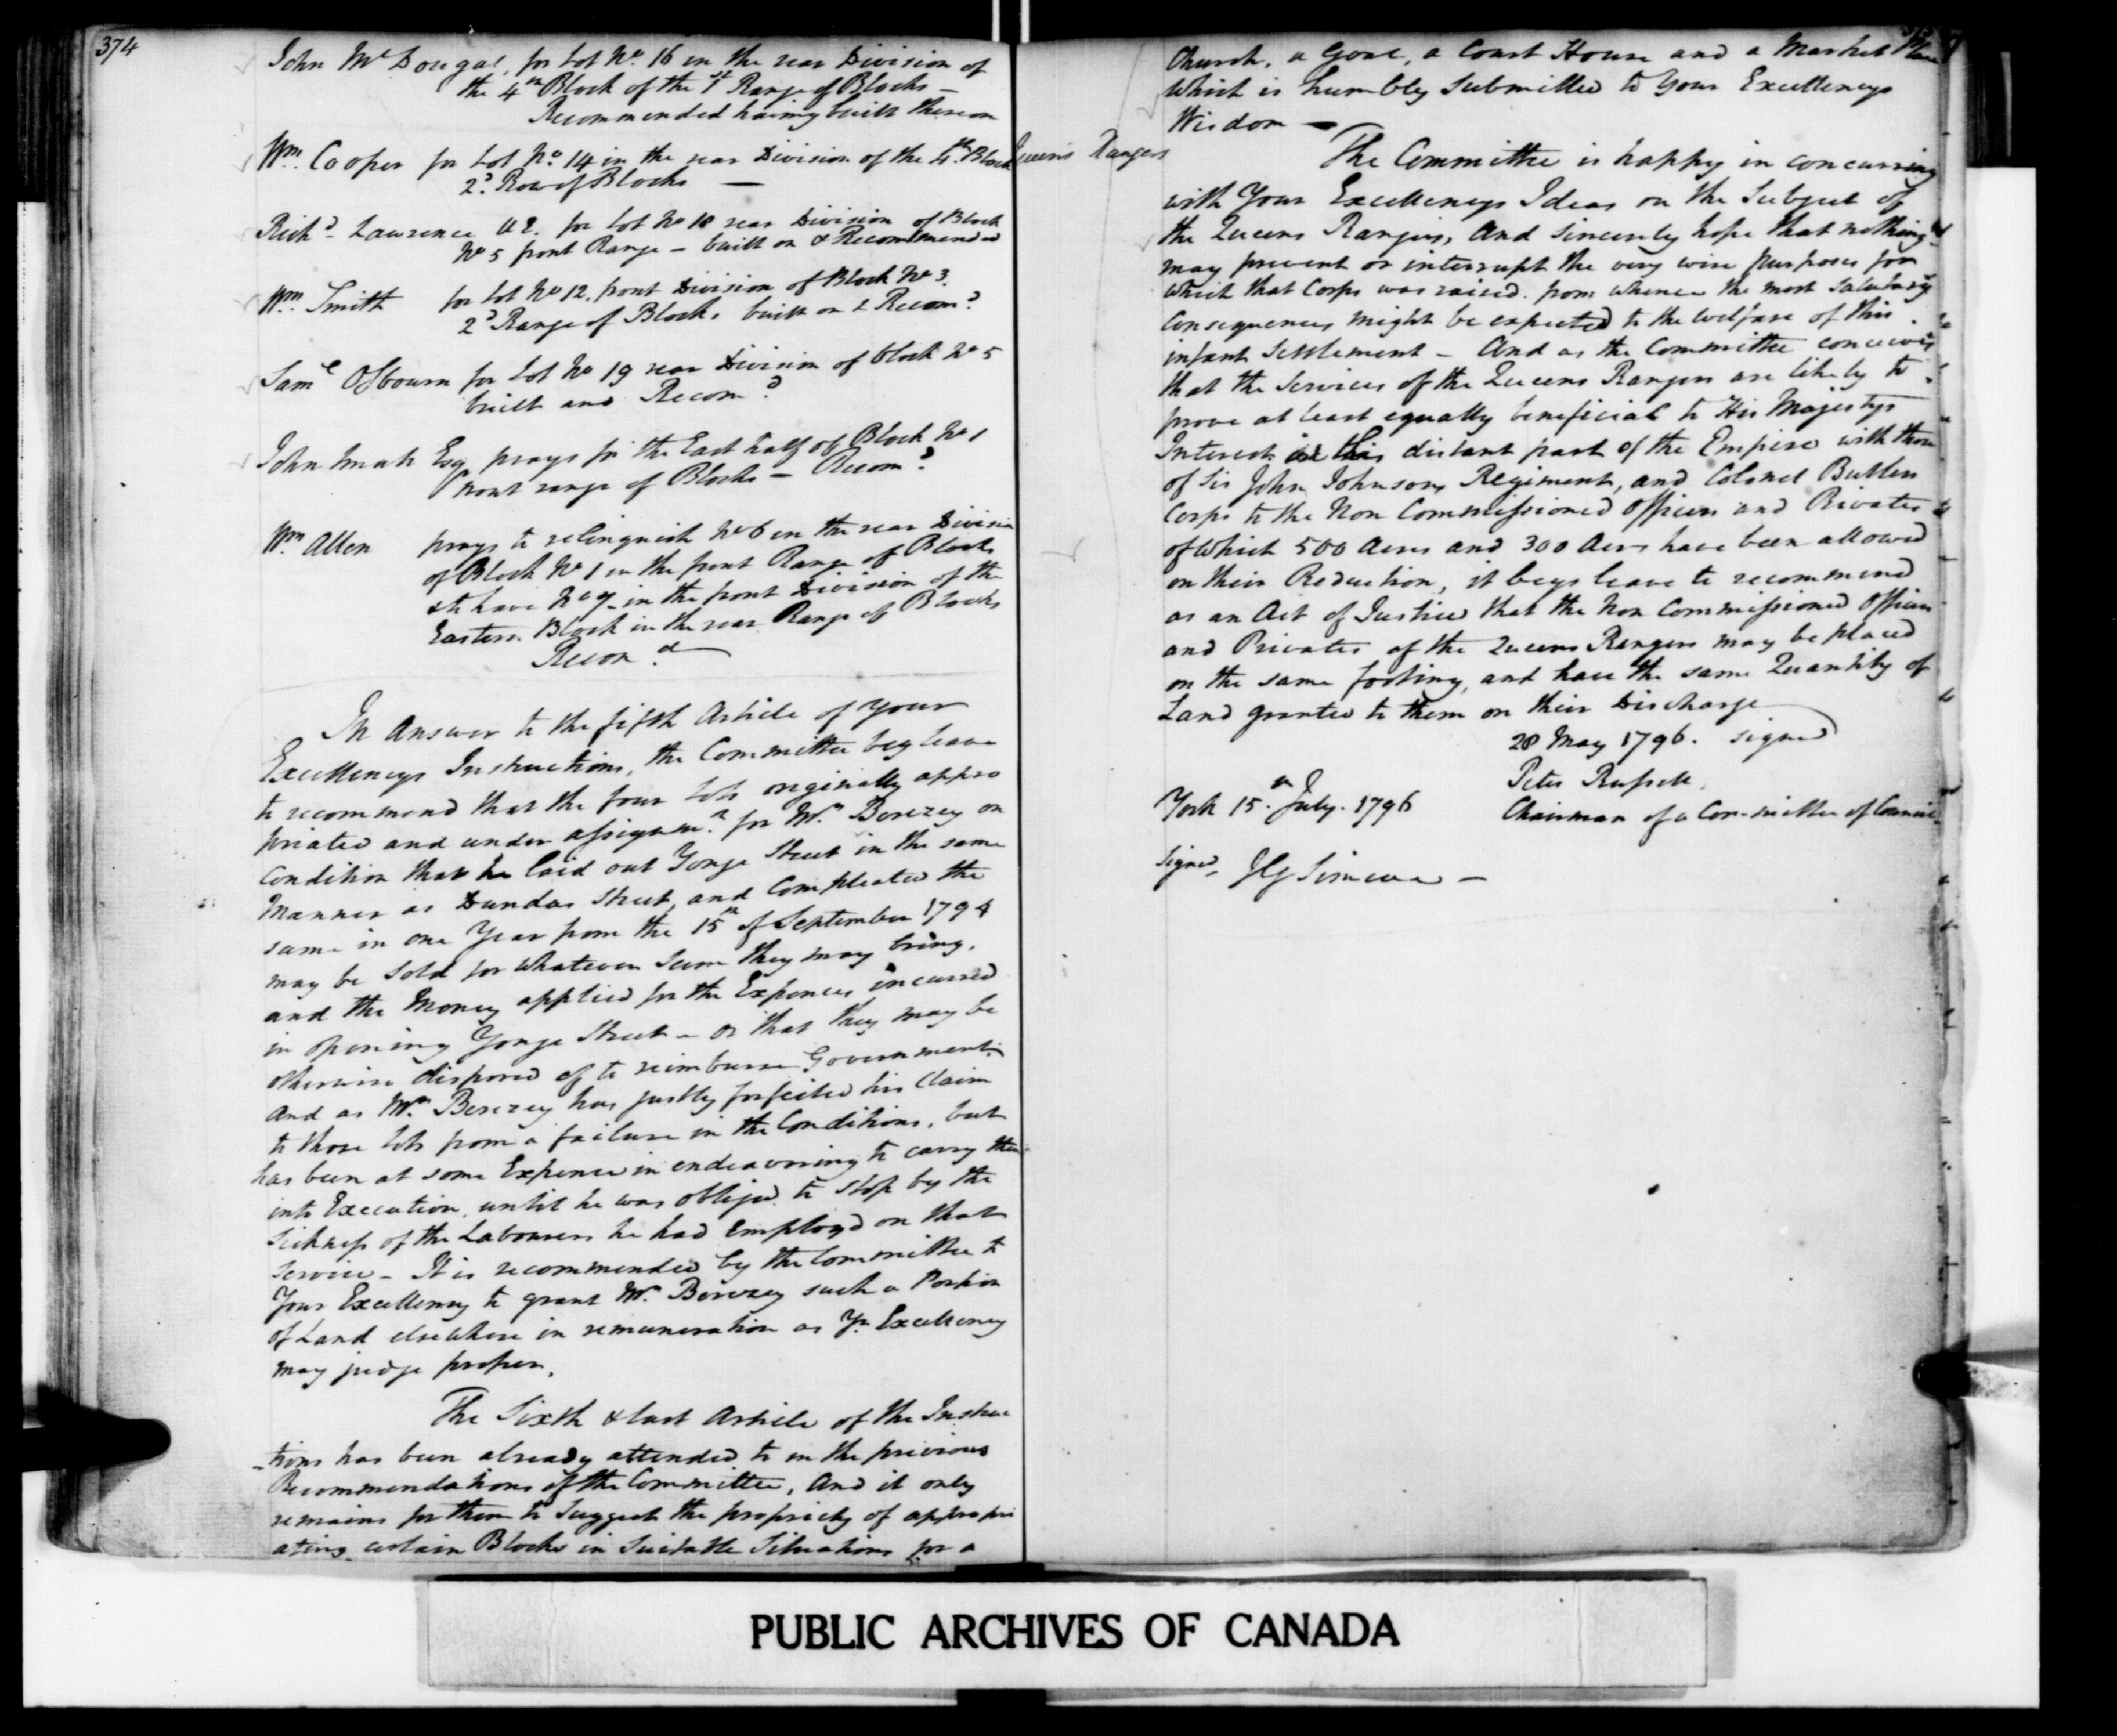 374
John McDougal, for Lot No. 16 in the rear Division of
the 4th Block of the 1st Range of Blocks —
Recommended having built thereon
Wm. Cooper for Lot No. 14 in the rear Division of the 4th Block
2d. Row of Blocks —
Richd. Lawrence U E. for Lot No 18 rear Division of Block
No 5 front Range — built on & Recommended
Wm. Smith for Lot No 12. front Division of Block No 3.
2d Range of Blocks built on & Recomd.
Saml Osbourn for Lot No 19 rear Division of block No 5
built and Recomd.
John Esq prays for the East half of Block No 1
front range of Blocks — Recomd.
Wm. Allen prays to relinquish No 6 in the rear Division
of Block No 1 in the front Range of Blocks
& to have No 7 in the front Division of the
Eastern Block in the rear Range of Blocks
Recomd.
In Answer to the fifth Article of Your
Excellencys Instructions, the Committee beg leave
to recommend that the four Lots originally appro
priated and under assignmt. for Mr. Berczey on
Condition that he laid out Yonge Street in the same
Manner as Dundas Street, and Compleated the
same in one Year from the 15th of September 1794
may be Sold for whatever Sum they may bring,
and the Money applied for the Expences incurred
in opening Yonge Street — or that they may be
otherwise disposed of to reimburse Government.
And as Mr. Berczey has justly forfeited his Claim
to those Lots from a failure in the Conditions, but
has been at some Expence in endeavoring to carry them
into Execution, until he was obliged to stop by the
Sickness of the Labourers he had Employd on that
Service — It is recommended by the Committee to
Your Excellency to grant Mr. Berczey such a Portion
of Land elsewhere in remuneration as Yr. Excellency
may judge proper.
The Sixth & last Article of the Instruc
-tions has been already attended to in the previous
Recommendations of the Committee, And it only
remains for them to Suggest the propriety of appropri
ating certain Blocks in Suitable Situations for a
Church, a Goal, a Court House and a Market Place
Which is humbly Submitted to Your Excellencys
Wisdom —
Queens Rangers
The Committee is happy in concurring
with Your Excellencys Ideas on the Subject of
the Queens Rangers, And sincerely hope that nothing
may prevent or interrupt the very wise purposes for
which that Corps was raised. from whence the most Salutary
Consequences might be expected to the welfare of this
infant Settlement — And as the Committee conceives
that the Services of the Queens Rangers are likely to
prove at least equally beneficial to His Majestys
Interest in this distant part of the Empire with those
of Sir John Johnsons Regiment, and Colonel Butlers
Corps to the Non Commissioned Officers and Privates
of which 500 Acres and 300 Acres have been allowed
on their Reduction, it begs leave to recommend
as an Act of Justice that the Non Commissioned Officers
and Privates of the Queens Rangers may be placed
on the same footing, and have the same Quantity of
Land granted to them on their Discharge
28 May 1796. signed
Peter Russell,
Chairman of a Committee of Council
York 15th July. 1796
Signed, J G Simcoe —
PUBLIC ARCHIVES OF CANADA